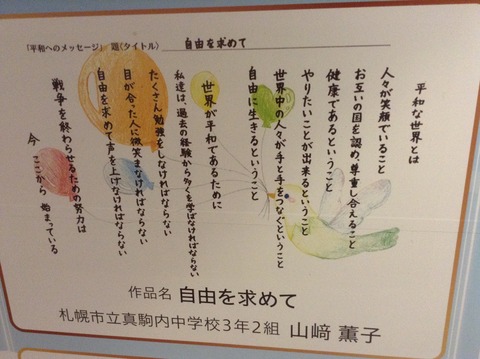 「平和へのメッセージ」 題(タイトル) 自由を求めて
平和な世界とは
人々が笑顔でいること
お互いの国を認め、尊重し合えること
健康であるということ
やりたいことが出来るということ
世界中の人々が手と手をつなぐということ
自由に生きるということ
世界が平和であるために
私達は、過去の経験から多くを学ばなければならない
たくさん勉強をしなければならない
目が合った人に微笑まなければならない
自由を求めて声を上げなければならない
戦争を終わらせるための努力は
今 ここから 始まっている
作品名 自由を求めて
札幌市立真駒内中学校3年2組 山﨑 薫子